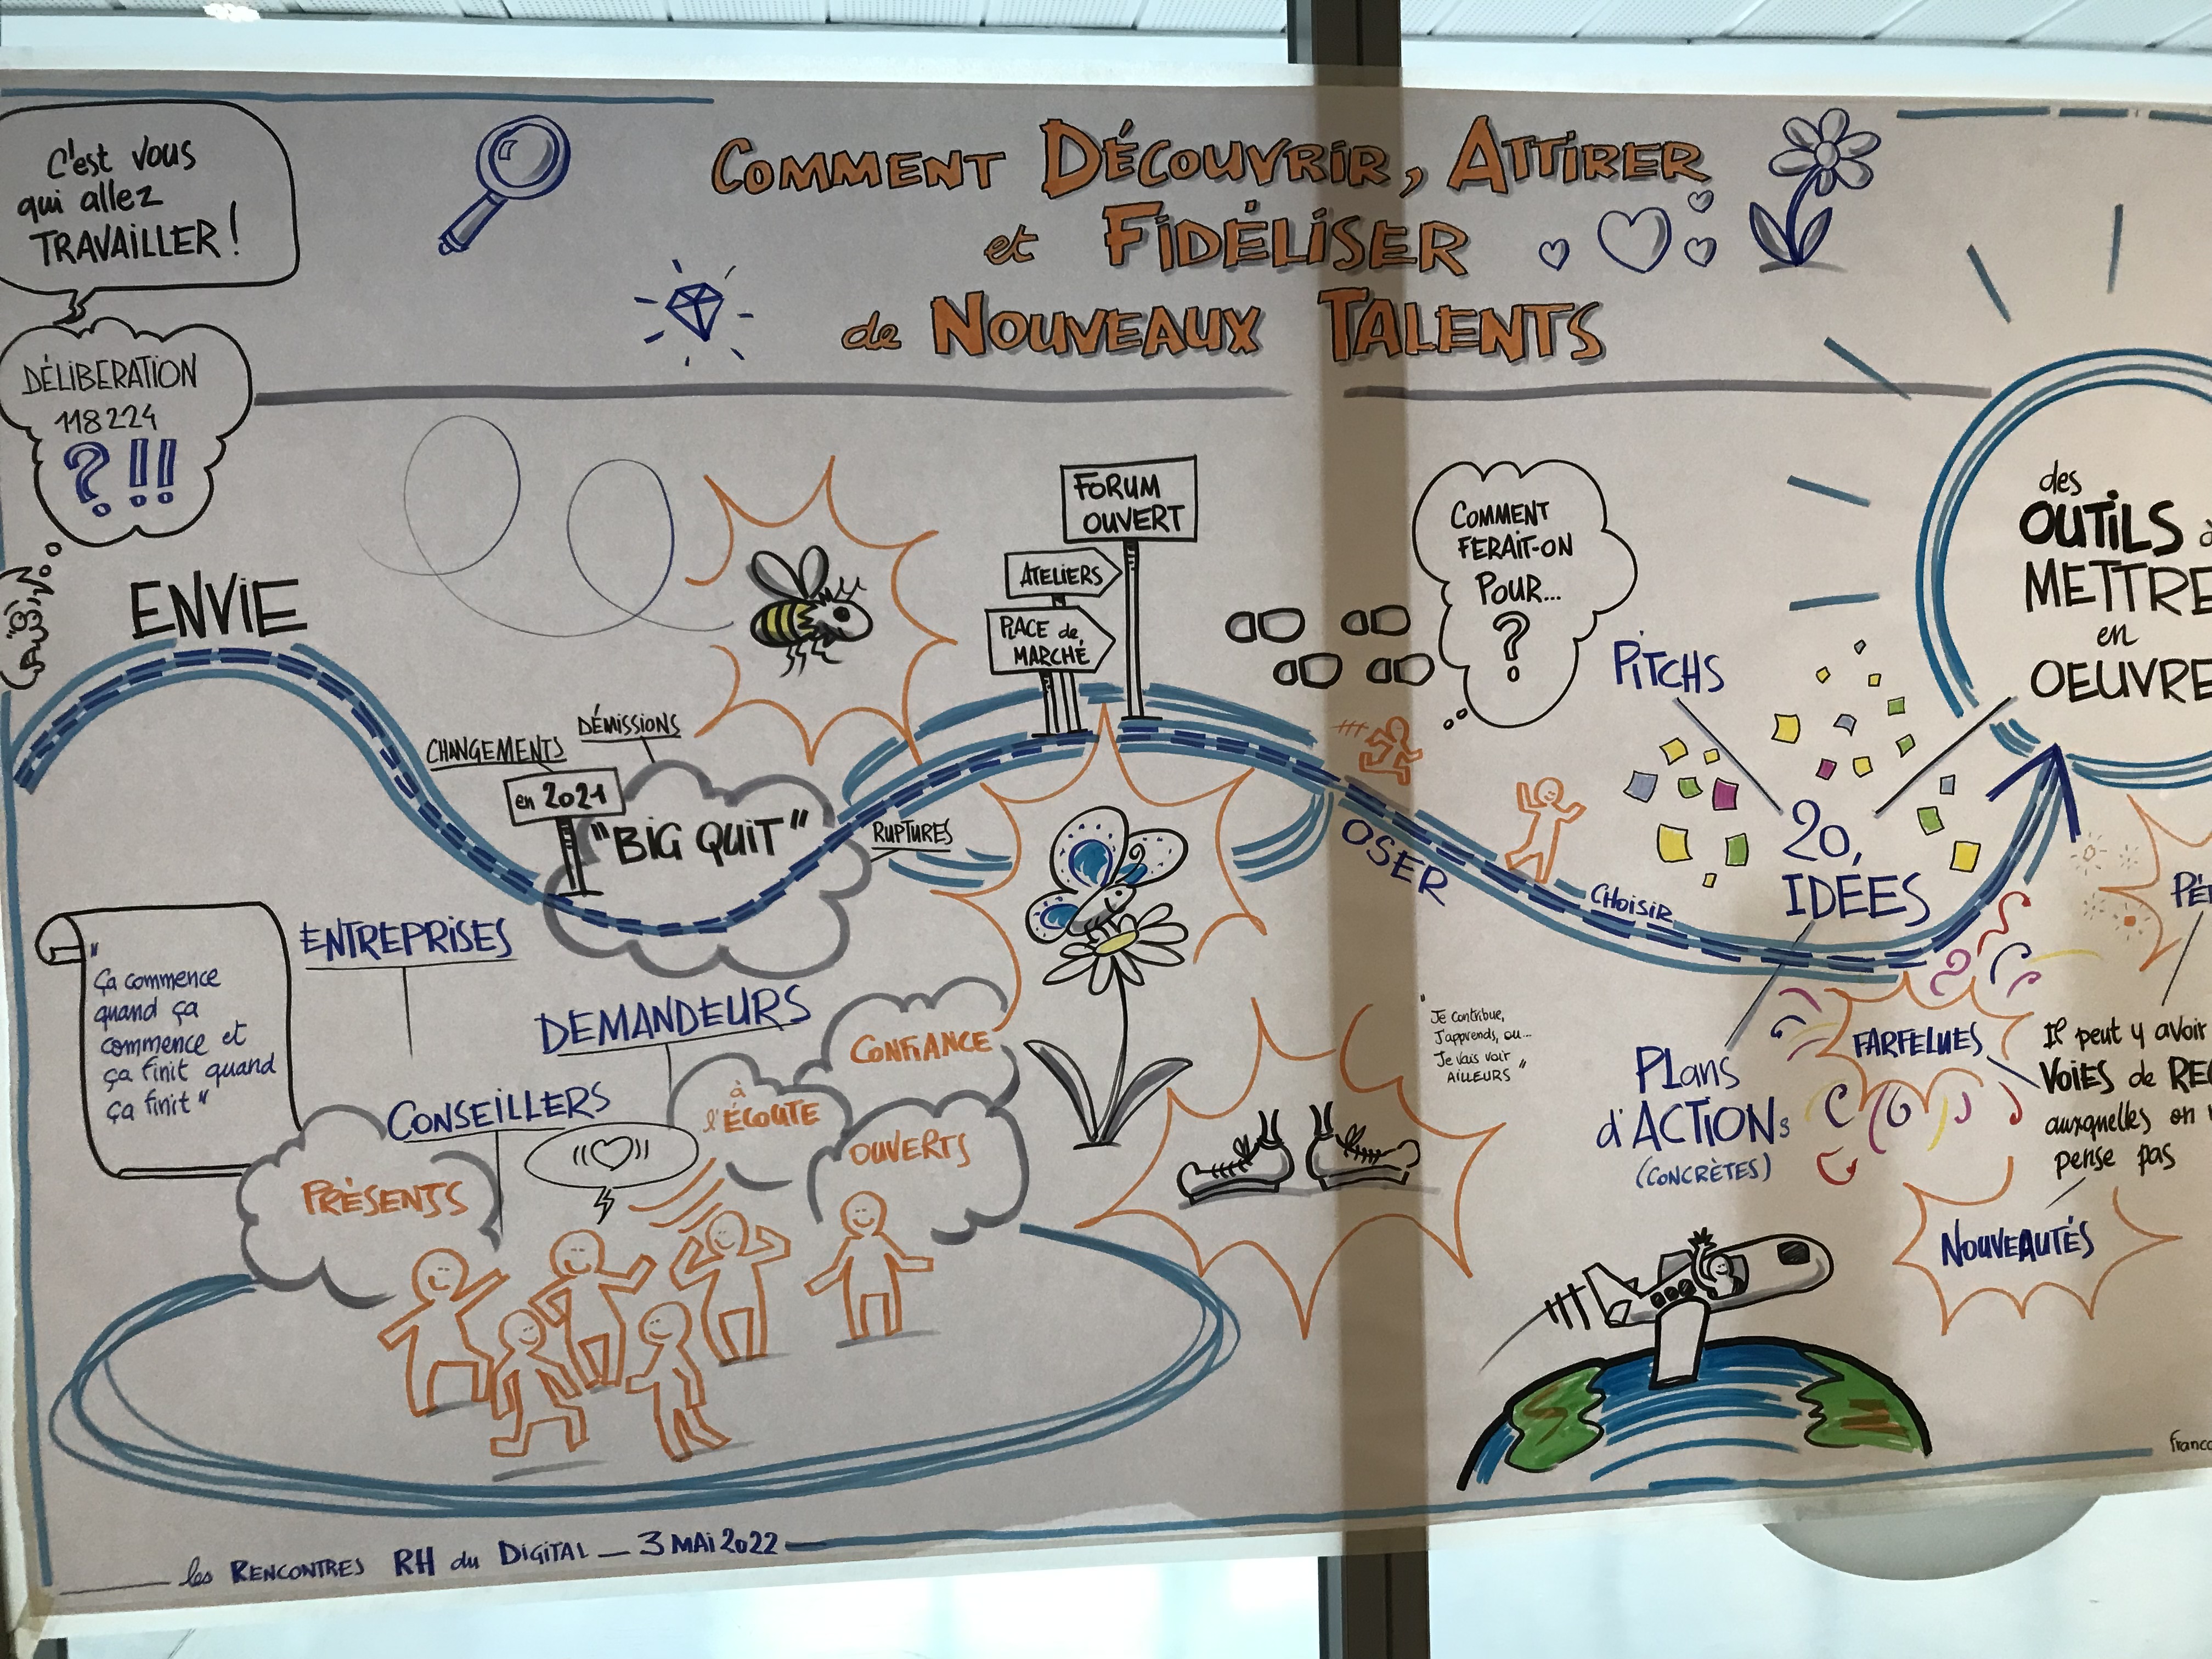 C'est vous
qui allez
TRAVAILLER !
COMMENT DÉCOUVRIR, ATTIRER
et FIDÉLISER
de NOUVEAUX TALENTS
DÉLIBERATION
118224
? !!
ENVIE
CHANGEMENTS
DÉMISSIONS
en 2021
"BIG QUIT"
RUPTURES
FORUM
OUVERT
ATELIERS
PLACE de
MARCHÉ
COMMENT
FERAIT-ON
POUR...
?
OSER
CHOISIR
PITCHS
20
IDÉES
des
OUTILS
METTRE
en
OEUVRE
"
Ça commence
quand ça
commence et
ça finit quand
ça finit"
ENTREPRISES
DEMANDEURS
CONSEILLERS
PRÉSENTS
à
l'ÉCOUTE
CONFIANCE
OUVERTS
"Je contribue,
J'apprends, ou...
Je vais voir
AILLEURS"
PLans
d'ACTIONs
(CONCRÈTES)
FARFELUES
Il peut y avoir
VOIES de
auxquelles on
pense pas
NOUVEAUTÉS
les RENCONTRES RH du DIGITAL — 3 MAI 2022